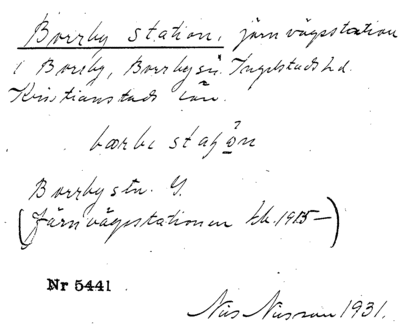 Borrby station, järnvägsstation
i Borrby, Borrby sn. Ingelstads hd.
Kristianstads län.
bærbe
Borrby stn. G.
(Järnvägsstationen tdt. 1915—)
Nr 5441
Nils Nilsson 1931.